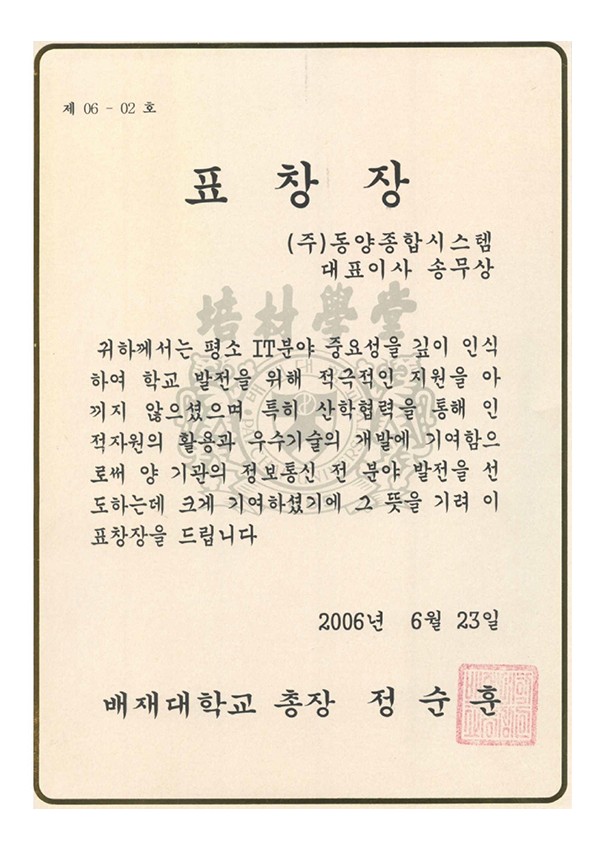 제 06 - 02 호
표 창 장
(주)동양종합시스템
대표이사 송무상
培材學堂
귀하께서는 평소 IT분야 중요성을 깊이 인식
하여 학교 발전을 위해 적극적인 지원을 아
끼지 않으셨으며 특히 산학협력을 통해 인
적자원의 활용과 우수기술의 개발에 기여함으
로써 양 기관의 정보통신 전 분야 발전을 선
도하는데 크게 기여하셨기에 그 뜻을 기려 이
표창장을 드립니다
2006년 6월 23일
배재대학교 총장 정 순 훈